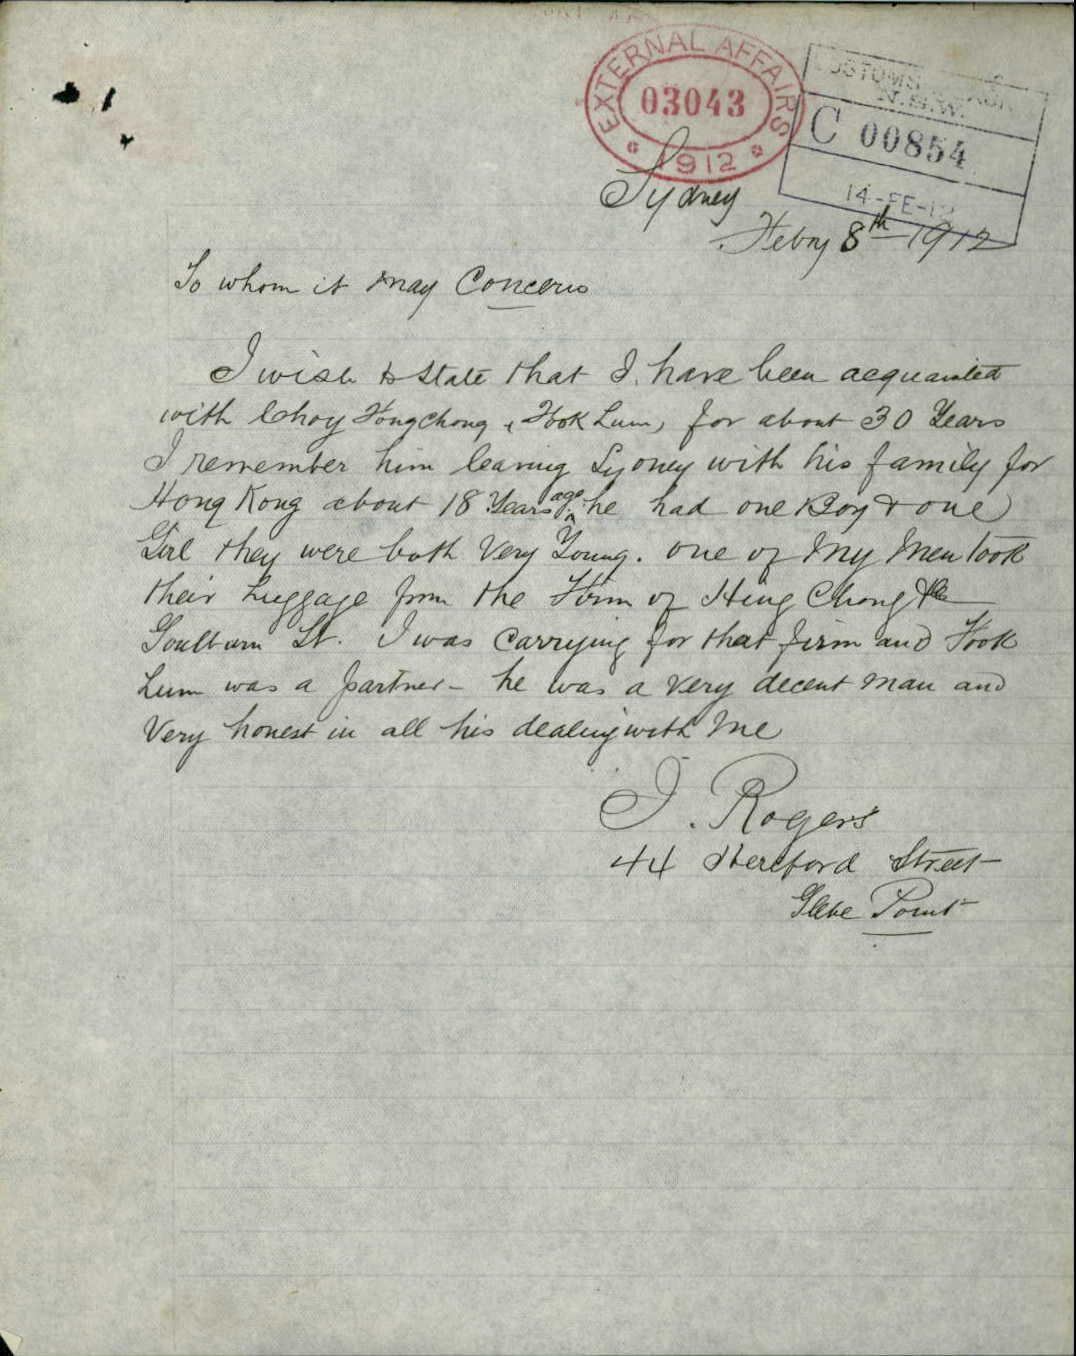 EXTERNAL AFFAIRS
03043
1912
CUSTOMS
N.S.W.
C 00854
14-FE-12
Sydney
Febry 8th 1912
To whom it may Concern
I wish to state that I have been acquainted
with Choy Hong Chong, Hook Lum, for about 30 Years
I remember him leaving Sydney with his family for
Hong Kong about 18 Years ago. he had one Boy & one
Girl they were both Very Young. one of My Men took
their Luggage from the Firm of Hing Chong & Co
Goulburn St. I was Carrying for that firm and Hook
Lum was a partner - he was a very decent man and
Very honest in all his dealing with Me
J. Rogers
44 Hereford Street
Glebe Point